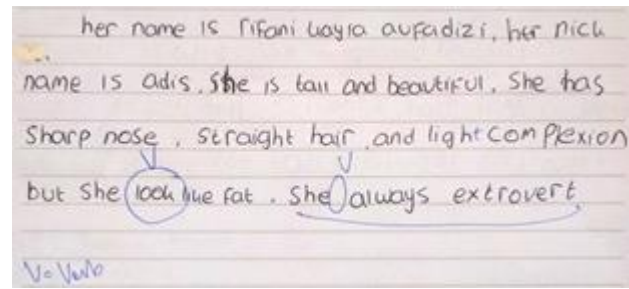 her name is rifani wayra aufadizi, her nick
name is adis. She is tall and beautiful. She has
Sharp nose, straight hair, and light complexion
V V
but She look like fat. She always extrovert
V = Verb